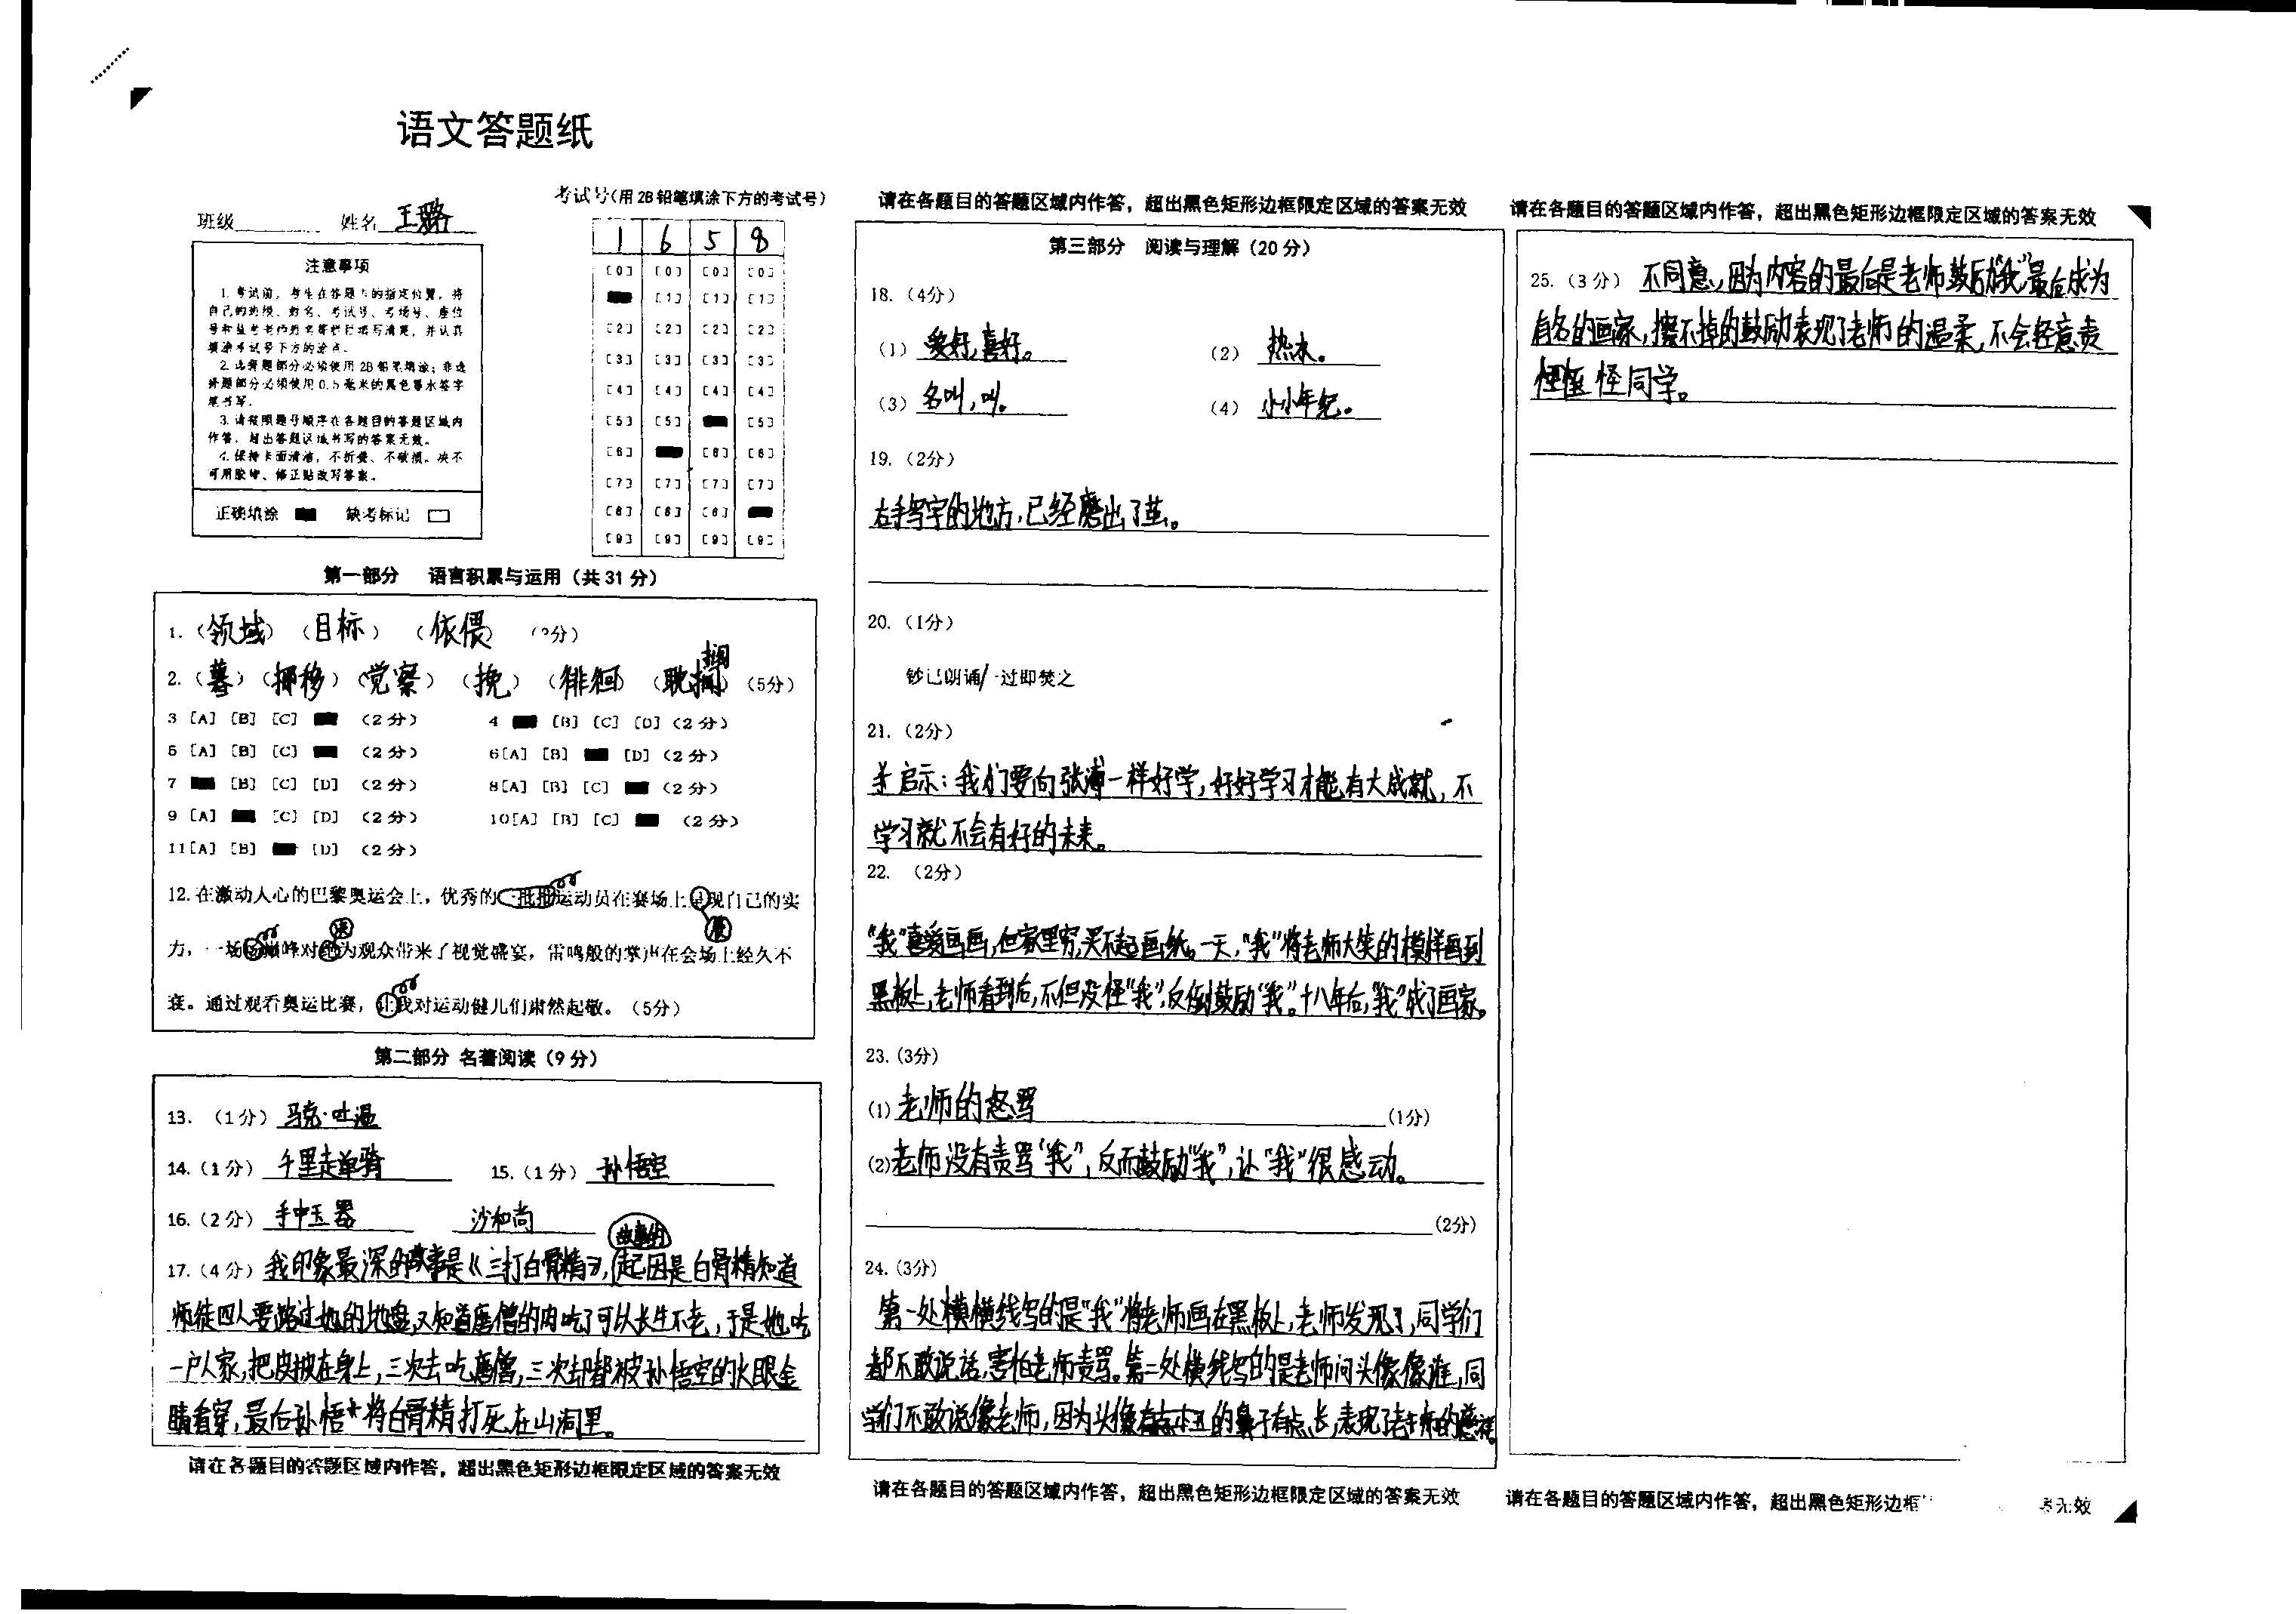 语文答题纸
班级 姓名 王璐
考试号(用2B铅笔填涂下方的考试号)
1 6 5 8
注意事项
1. 考试前，考生在答题卡的指定位置，将
自己的班级、姓名、考试号、考场号、座位
号和监考老师姓名等栏目填写清楚，并认真
填涂考试号下方的涂点。
2. 选择题部分必须使用2B铅笔填涂；非选
择题部分必须使用0.5毫米的黑色墨水签字
笔书写.
3. 请按照题号顺序在各题目的答题区域内
作答，超出答题区域书写的答案无效。
4. 保持卡面清洁，不折叠、不破损。决不
可用胶带、修正贴改写答案。
正确填涂 缺考标记
[0] [0] [0] [0]
[1] [1] [1]
[2] [2] [2] [2]
[3] [3] [3] [3]
[4] [4] [4] [4]
[5] [5] [5]
[6] [6] [6]
[7] [7] [7] [7]
[8] [8] [8]
[9] [9] [9] [9]
第一部分 语言积累与运用（共31分）
1.（领域）（目标）（依偎）
2.（暮）（挪移）（觉察）（挽）（徘徊）（耽搁）（5分）
3 [A] [B] [C] （2分） 4 [B] [C] [D]（2分）
5 [A] [B] [C] （2分） 6[A] [B] [D]（2分）
7 [B] [C] [D] （2分） 8[A] [B] [C] （2分）
9 [A] [C] [D] （2分） 10[A] [B] [C] （2分）
11[A] [B] [D] （2分）
12.在激动人心的巴黎奥运会上，优秀的一批批运动员在赛场上呈现自己的实
力，一场场巅峰对绝为观众带来了视觉盛宴，雷鸣般的掌声在会场上经久不
衰。通过观看奥运比赛，让我对运动健儿们肃然起敬。（5分）
展
决
第二部分 名著阅读（9分）
13.（1分）马克·吐温
14.（1分）千里走单骑 15.（1分）孙悟空
16.（2分）手中玉器 沙和尚
17.（4分）我印象最深的故事是《三打白骨精》，故事的起因是白骨精知道
师徒四人要路过她的地盘，又知道唐僧的肉吃了可以长生不老，于是她吃
一户人家，把皮披在身上，三次去吃唐僧，三次却都被孙悟空的火眼金
睛看穿，最后孙悟将白骨精打死在山洞里。
请在各题目的答题区域内作答，超出黑色矩形边框限定区域的答案无效
请在各题目的答题区域内作答，超出黑色矩形边框限定区域的答案无效
第三部分 阅读与理解（20分）
18.（4分）
（1）爱好，喜好。 （2）热水。
（3）名叫，叫。 （4）小小年纪。
19.（2分）
右手写字的地方，已经磨出了茧。
20.（1分）
钞已朗诵/一过即焚之
21.（2分）
启示：我们要向张溥一样好学，好好学习才能有大成就，不
学习就不会有好的未来。
22. （2分）
“我”喜爱画画，但家里穷，买不起画纸。一天，“我”将老师大笑的模样画到
黑板上，老师看到后，不但没怪“我”，反倒鼓励“我”。十八年后，“我”成了画家。
23.(3分)
(1)老师的怒骂(1分)
(2)老师没有责骂“我”，反而鼓励“我”，让“我”很感动。
(2分)
24.(3分)
第一处横横线写的是“我”将老师画在黑板上，老师发现了，同学们
都不敢说话，害怕老师责骂。第二处横线写的是老师问头像像谁，同
学们不敢说像老师，因为头像的鼻子有点长，表现了老师的慈祥。
请在各题目的答题区域内作答，超出黑色矩形边框限定区域的答案无效
请在各题目的答题区域内作答，超出黑色矩形边框限定区域的答案无效
25.（3分）不同意，因为内容的最后是老师鼓励“我”，最后成为
有名的画家，擦不掉的鼓励表现了老师的温柔，不会轻意责
怪同学。
请在各题目的答题区域内作答，超出黑色矩形边框 无效